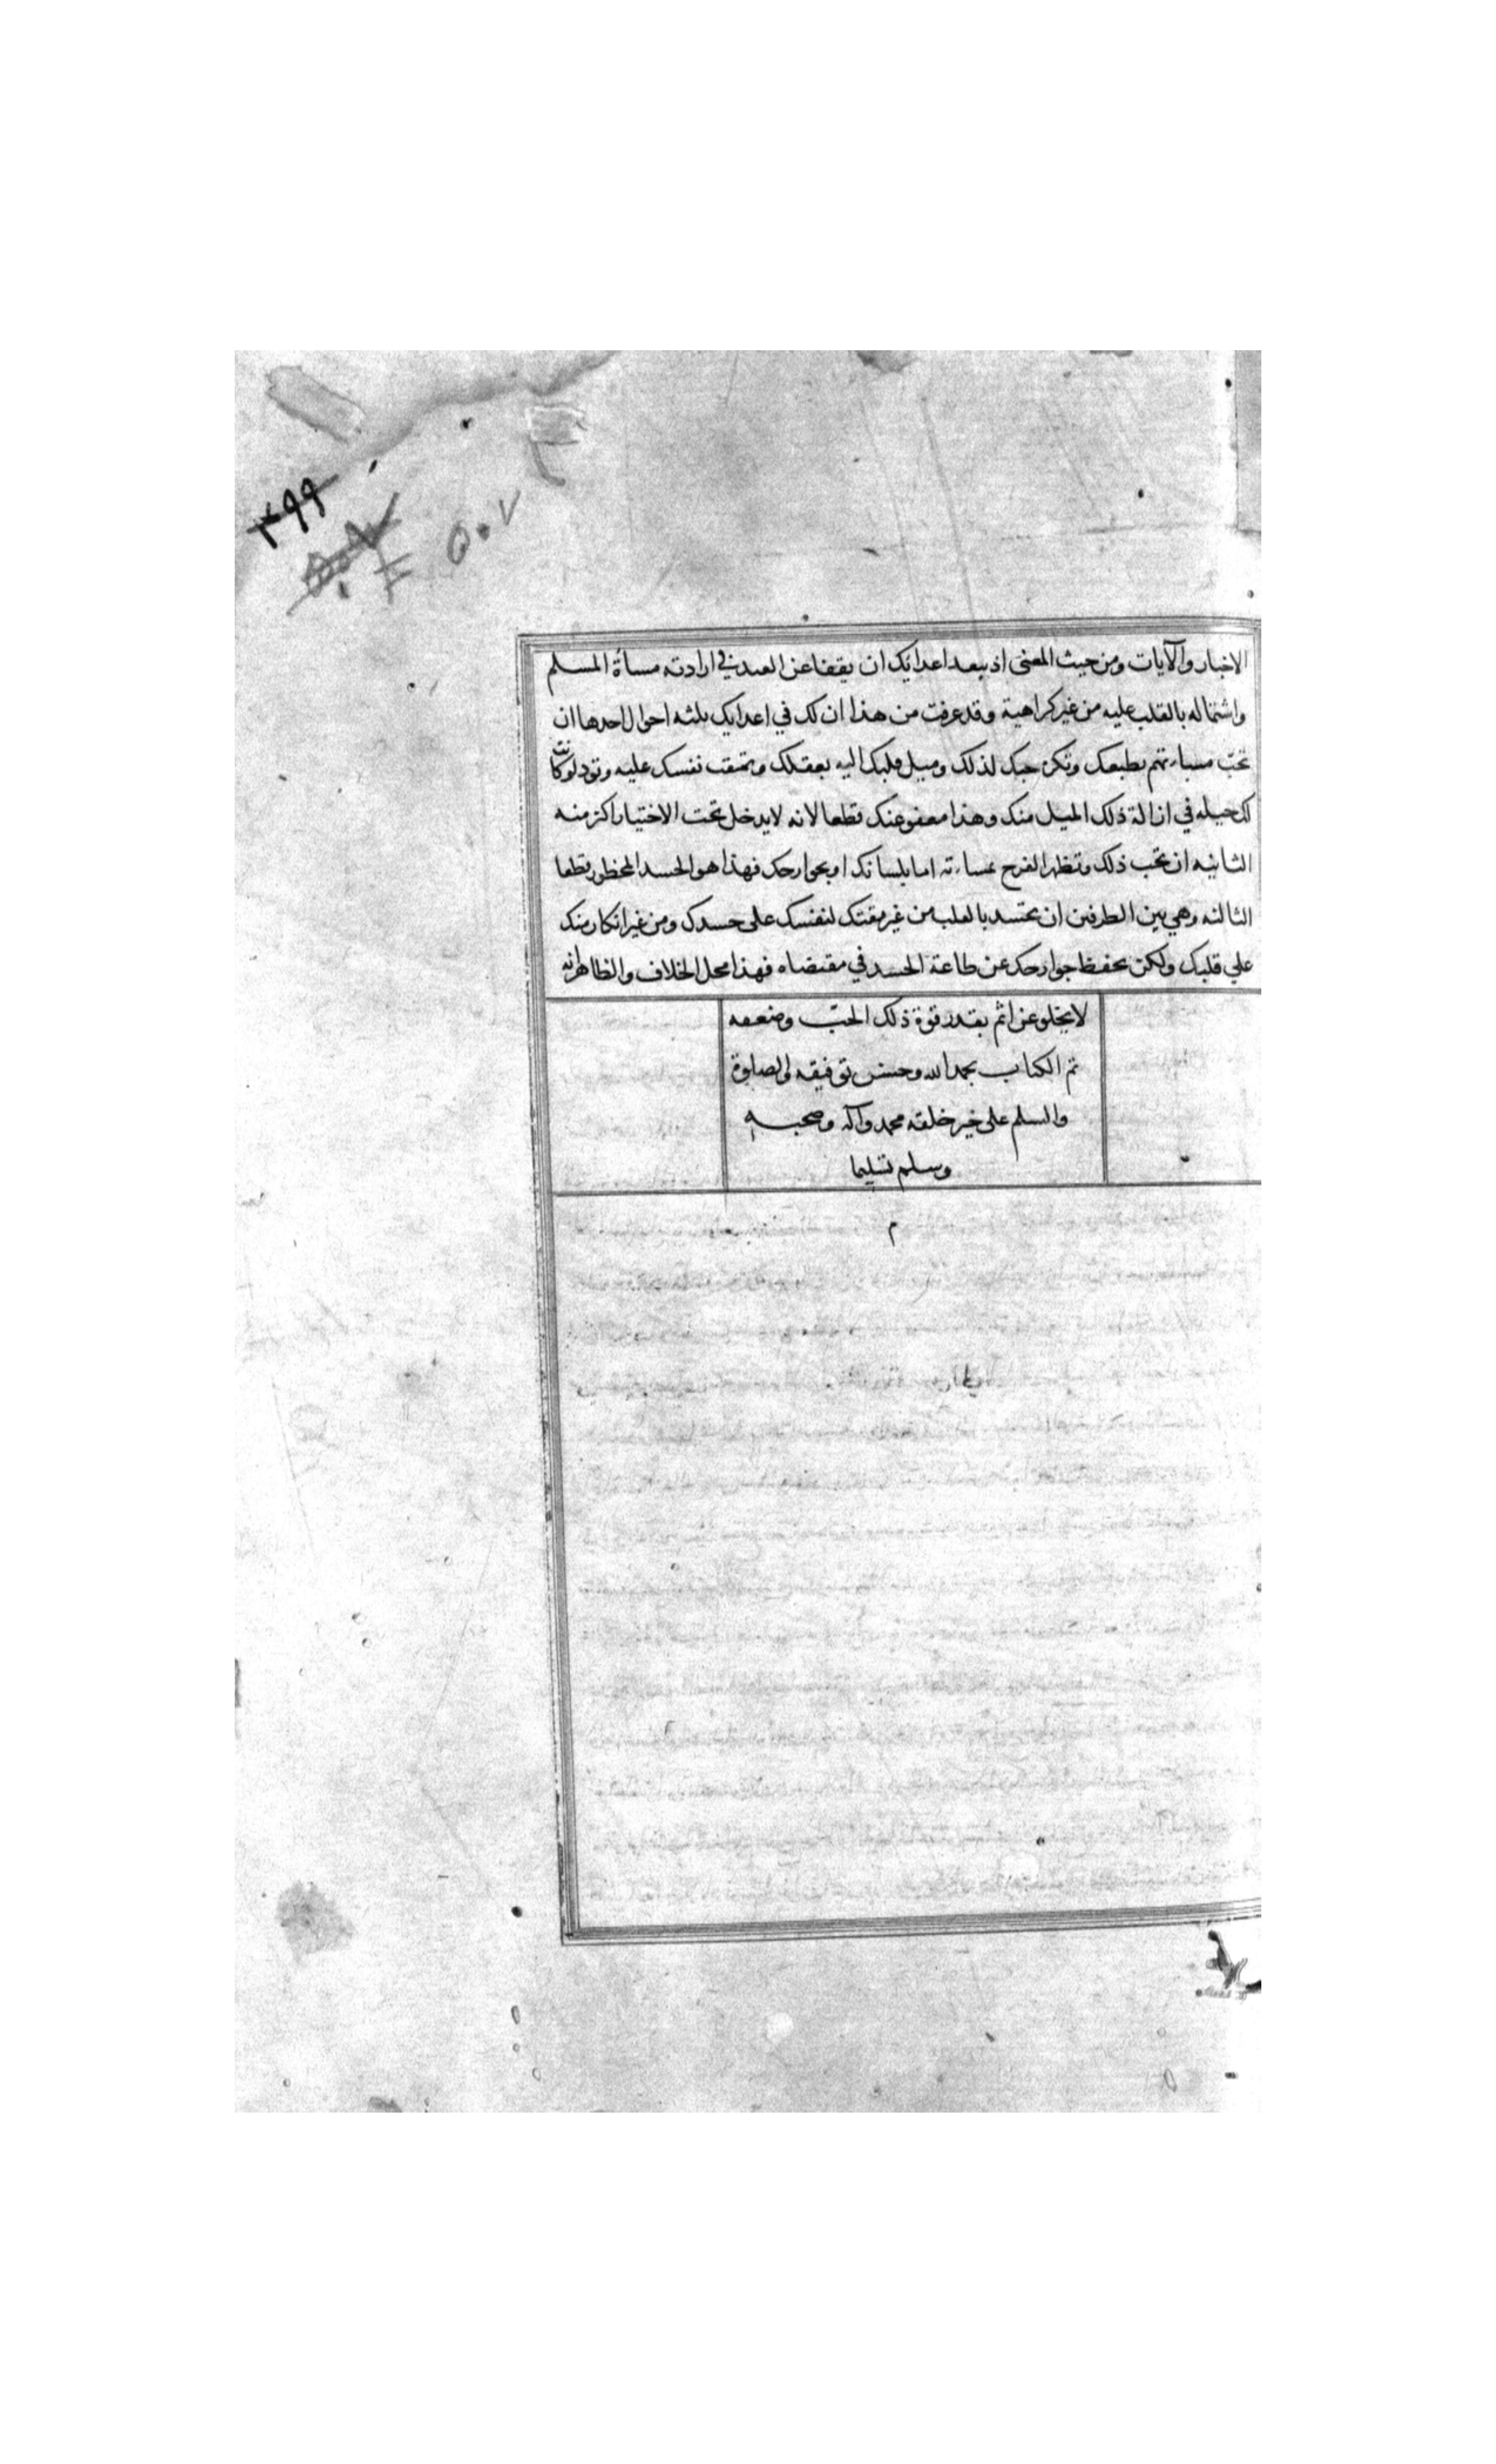 ٣٩٩
٥٠٧
الاخبار والآيات ومن حيث المعنى اذ يبعد اعدايك ان يقفا عن العبد في ارادته مسأة المسلم
واشتماله بالقلب عليه من غير كراهية وقد عرفت من هذا ان لك في اعدايك ثلثه احوال احدها ان
تحبّ مساءتهم بطبعك وتكره حبك لذلك وميل قلبك اليه بعقلك وتمقت نفسك عليه وتود لو كانت
لك حيله في ازالة ذلك الميل منك وهذا معفو عنك قطعا لانه لا يدخل تحت الاختيار اكثر منه
الثانيه ان تحب ذلك وتظهر الفرح بمساءته اما بلسانك او بجوارحك فهذا هو الحسد المحظور قطعا
الثالثه وهي بين الطرفين ان تحسد بالقلب من غير مقتك لنفسك على حسدك ومن غير انكار منك
علي قلبك ولكن تحفظ جوارحك عن طاعة الحسد في مقتضاه فهذا محل الخلاف والظاهر انه
لا يخلو عن اثم بقدر قوة ذلك الحبّ وضعفه
تم الكتاب بحمد الله وحسن توفيقه والصلوة
والسلم على خير خلقه محمد وآله وصحبه
وسلم تسليما
م